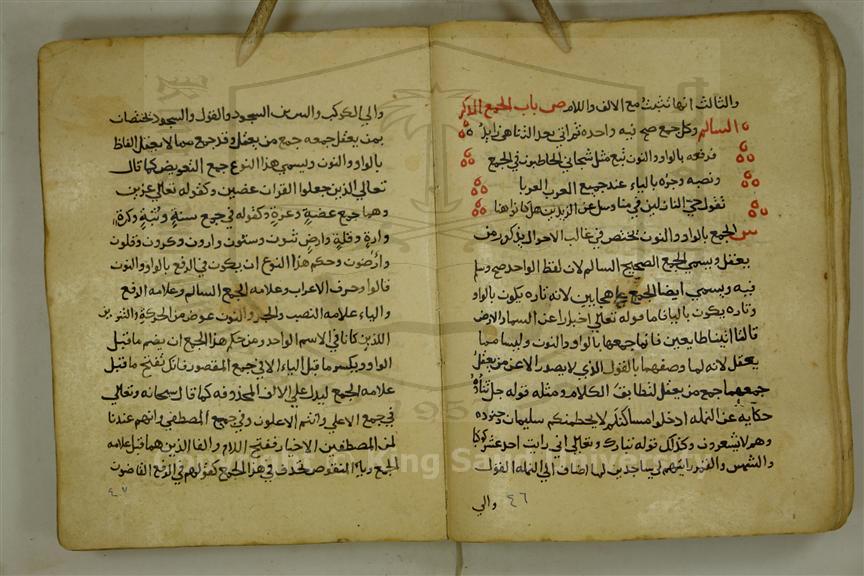 والثالث انها تثبت مع الالف واللام ص باب الجمع المذكر
السالم وكل جمع صح فيه واحده ثم اتى بعد التناهي زايده
فرفعه بالواو والنون تبع مثل شجاني الخاطبون في الجمع
ونصبه وجره بالياء عند جميع العرب العربا
تقول حي النازلين في منا وسل عن الزيدين هل كانوا هنا
ش الجمع بالواو والنون تختص في غالب الاحوال بذكور من
يعقل ويسمى الجمع الصحيح السالم لان لفظ الواحد صح وسلم
فيه ويسمى ايضا الجمع على هجايين لانه تاره يكون بالواو
وتاره يكون بالياء فاما قوله تعالى اخبارا عن السماء والارض
قالتا اتينا طايعين فانما جمعها بالواو والنون وليسا مما
يعقل لانه لما وصفهما بالقول الذي لا يصدر الا عن من يعقل
جمعهما جمع من يعقل لتطابق الكلام ومثله قوله جل ثناؤه
حكاية عن النمله ادخلوا مساكنكم لا يحطمنكم سليمان وجنوده
وهم لا يشعرون وكذلك قوله تبارك وتعالى اني رايت احد عشر كوكبا
والشمس والقمر رايتهم لي ساجدين لما اضاف الى النمله القول
والي
٤٦
والى الكوكب والنيرين السجود والقول والسجود تختصان
بمن يعقل جمعه جمع من يعقل وقد جمع مما لا يعقل الفاظ
بالواو والنون ويسمى هذا النوع جمع التعويض كما قال
تعالى الذين جعلوا القران عضين وكقوله تعالى عزين
وهما جمع عضه وعزة وكقوله في جمع سنة وثبة وكرة
وارة وقلة وارض ثبون وسنون وارون وكرون وقلون
وارضون وحكم هذا النوع ان يكون في الرفع بالواو والنون
فالواو حرف الاعراب وعلامه الجمع السالم وعلامه الرفع
والياء علامه النصب والجر والنون عوض من الحركة والتنوين
اللذين كانا في الاسم الواحد ومن حكم هذا الجمع ان يضم ما قبل
الواو ويكسر ما قبل الياء الا في جمع المقصور فانك تفتح ما قبل
علامه الجمع ليدل على الالف المحذوفه كما قال سبحانه وتعالى
في جمع الاعلى وانتم الاعلون وفي جمع المصطفى وانهم عندنا
لمن المصطفين الاخيار ففتح اللام والفا الذين هما قبل علامه
الجمع وياء المنقوص تحذف في هذا الجمع كقولهم في الرفع القاضون
٤٧